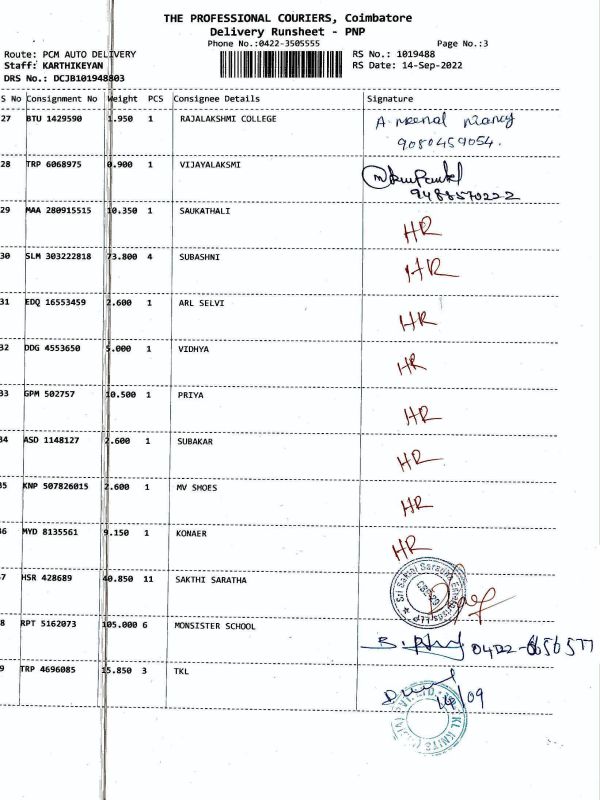 THE PROFESSIONAL COURIERS, Coimbatore
Delivery Runsheet - PNP
Phone No.:0422-3505555
Page No.:3
Route: PCM AUTO DELIVERY
RS No.: 1019488
Staff: KARTHIKEYAN
RS Date: 14-Sep-2022
DRS No.: DCJB101948803
S No Consignment No Weight PCS Consignee Details Signature
27 BTU 1429590 1.950 1 RAJALAKSHMI COLLEGE
9080459054.
28 TRP 6068975 0.900 1 VIJAYALAKSMI
9488570222
29 MAA 280915515 10.350 1 SAUKATHALI HR
30 SLM 303222818 73.800 4 SUBASHNI HR
31 EDQ 16553459 2.600 1 ARL SELVI HR
32 DDG 4553650 5.000 1 VIDHYA HR
33 GPM 502757 10.500 1 PRIYA HR
34 ASD 1148127 2.600 1 SUBAKAR HR
35 KNP 507826015 2.600 1 MV SHOES HR
36 MYD 8135561 9.150 1 KONAER HR
7 HSR 428689 40.850 11 SAKTHI SARATHA
Sri Sakthi Saradha
8 RPT 5162073 105.000 6 MONSISTER SCHOOL
9 TRP 4696085 15.850 3 TKL
14/09